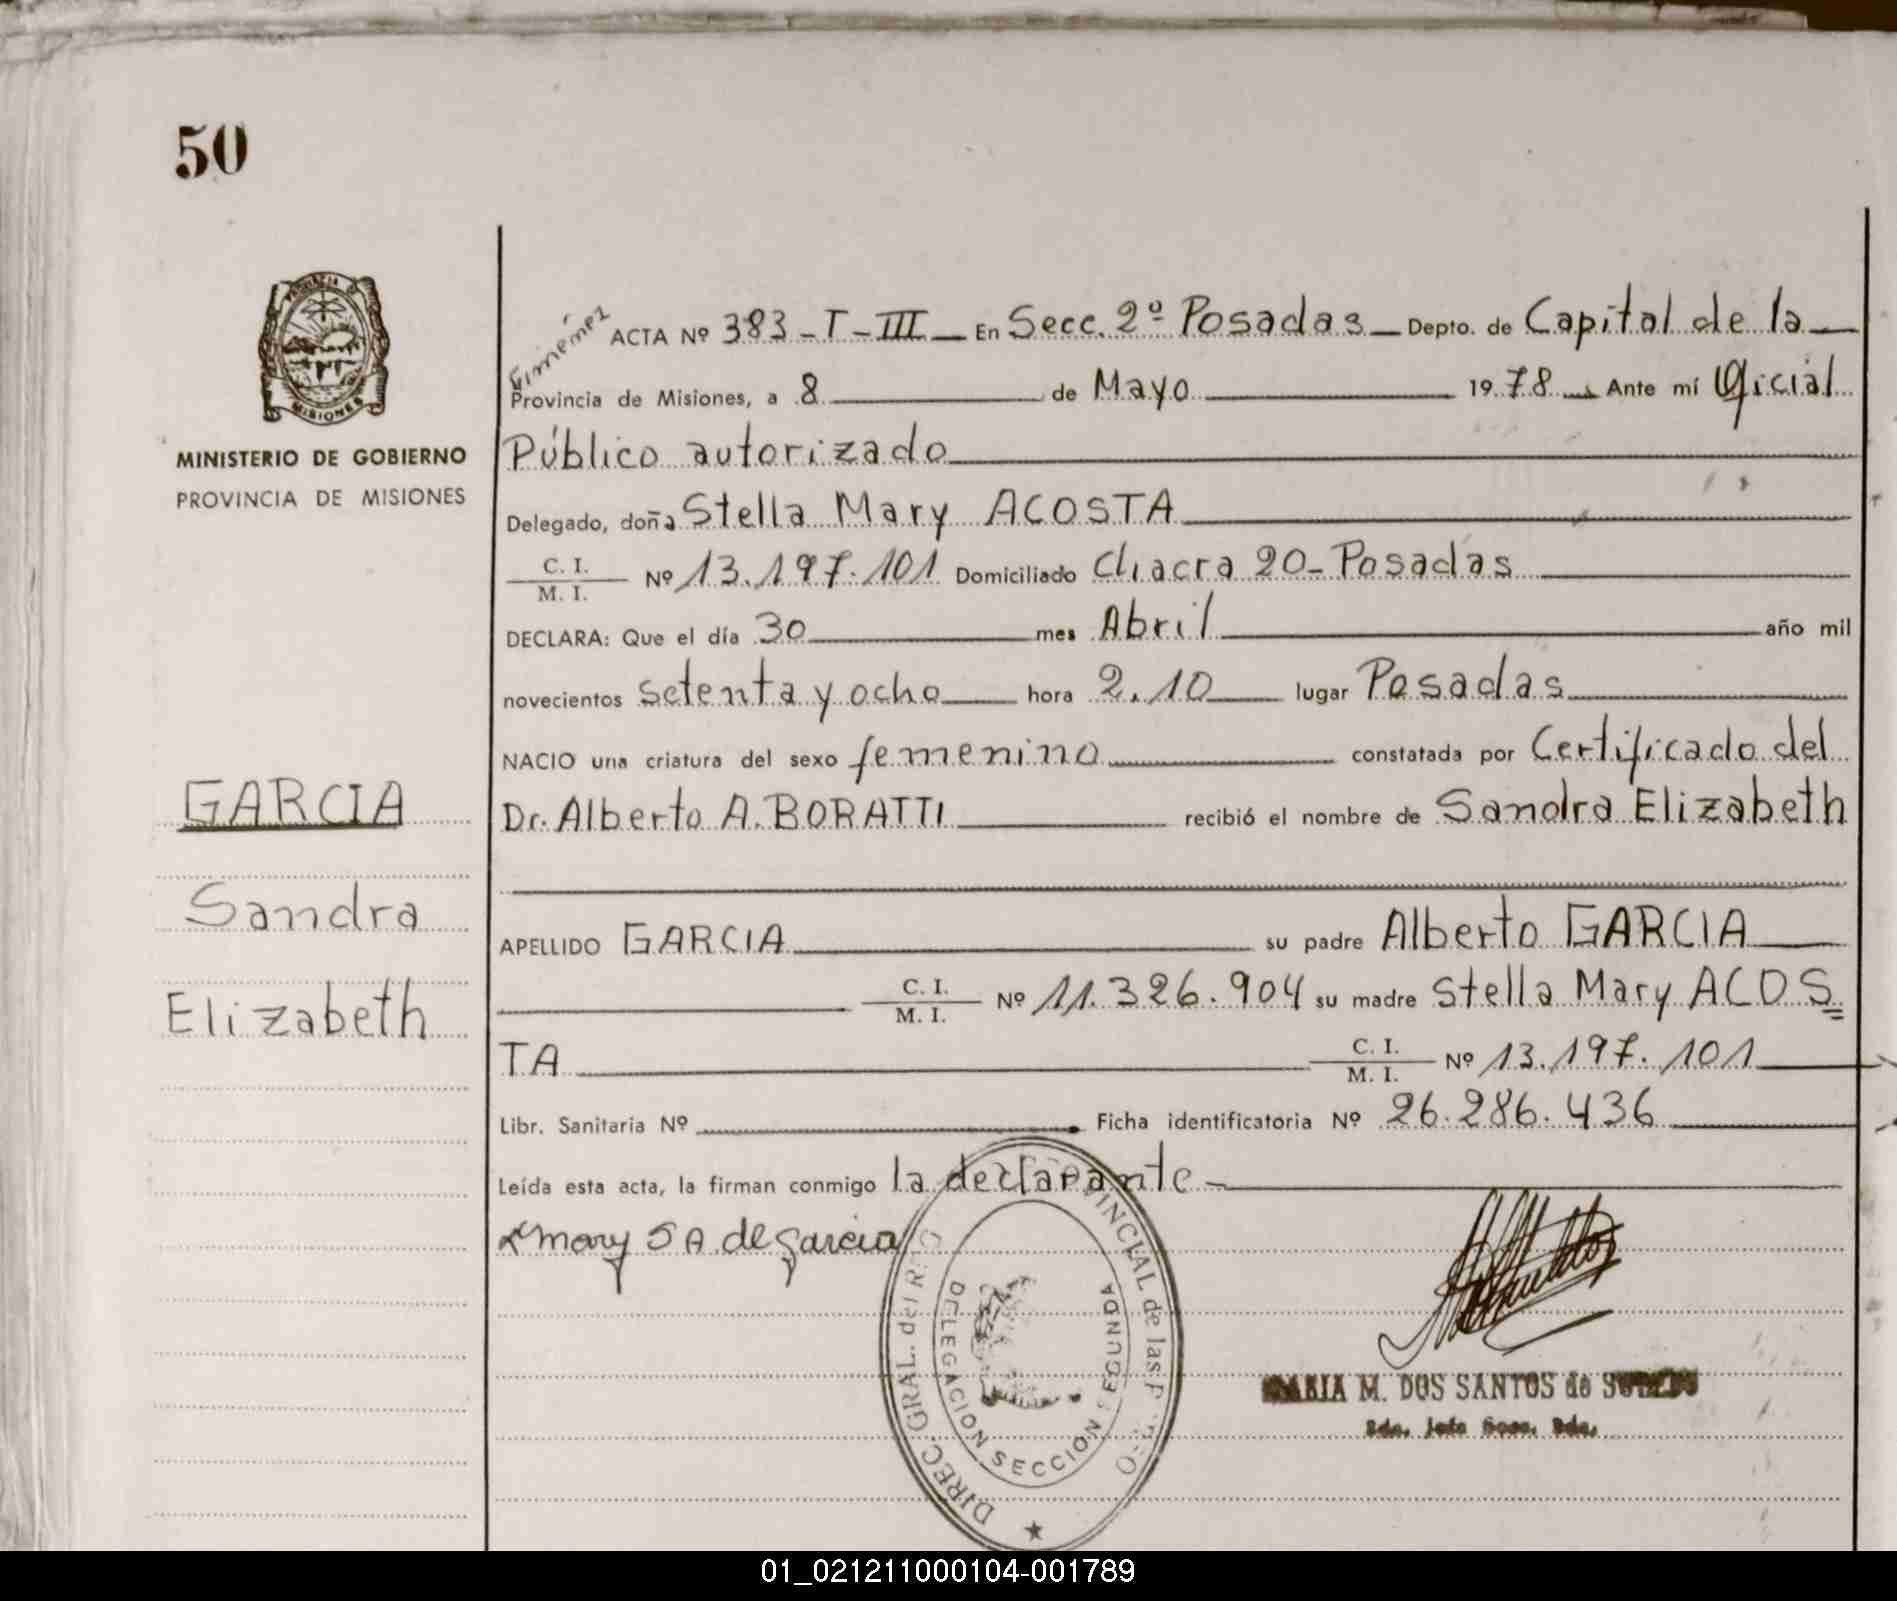 50
PROVINCIA DE
MISIONES
MINISTERIO DE GOBIERNO
PROVINCIA DE MISIONES
GARCIA
Sandra
Elizabeth
Giménez
ACTA Nº 383-T-III En Secc. 2º Posadas Depto. de Capital de la
Provincia de Misiones, a 8 de Mayo 1978 Ante mí Oficial
Público autorizado
Delegado, doña Stella Mary ACOSTA
C. I.
M. I. Nº 13.197.101 Domiciliado Chacra 20-Posadas
DECLARA: Que el día 30 mes Abril año mil
novecientos setenta y ocho hora 2.10 lugar Posadas
NACIO una criatura del sexo femenino constatada por Certificado del
Dr. Alberto A. BORATTI recibió el nombre de Sandra Elizabeth
APELLIDO GARCIA su padre Alberto GARCIA
C. I.
M. I. Nº 11.326.904 su madre Stella Mary ACOS
TA C. I.
M. I. Nº 13.197.101
Libr. Sanitaria Nº Ficha identificatoria Nº 26.286.436
Leída esta acta, la firman conmigo la declarante
Mary S A. de Garcia
DIREC. GRAL. del PROVINCIAL de las
DELEGACION SECCION SEGUNDA
MARIA M. DOS SANTOS de
01_021211000104-001789